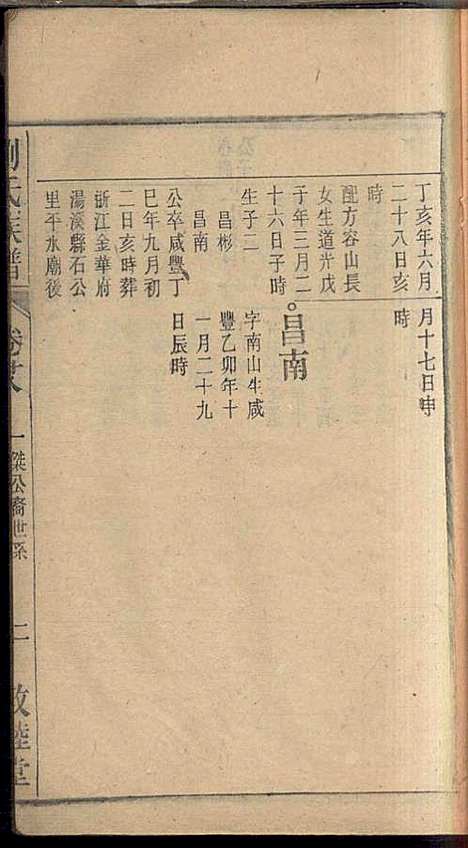 丁亥年六月
二十八日亥
時
配方容山長
女生道光戊
子年三月二
十六日子時
生子二
昌彬
昌南
公卒咸豐丁
巳年九月初
二日亥時葬
浙江金華府
湯溪縣石公
里平水廟後
月十七日申
時
昌南
字南山生咸
豐乙卯年十
一月二十九
日辰時
劉氏族譜
卷廿八
一傑公裔世系
二
敦睦堂